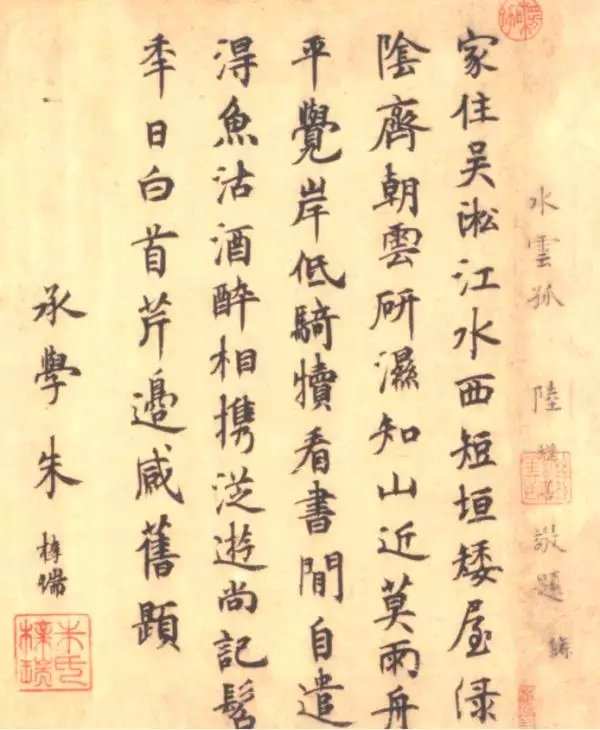 水雲孤 陸繼善敬題
家住吴淞江水西短垣矮屋渌
陰齊朝雲研濕知山近莫雨舟
平覺岸低騎犢看書閒自遣
得魚沽酒醉相携從遊尚記髫
秊日白首芹邊感舊題
承學朱梓瑞
朱氏梓瑞